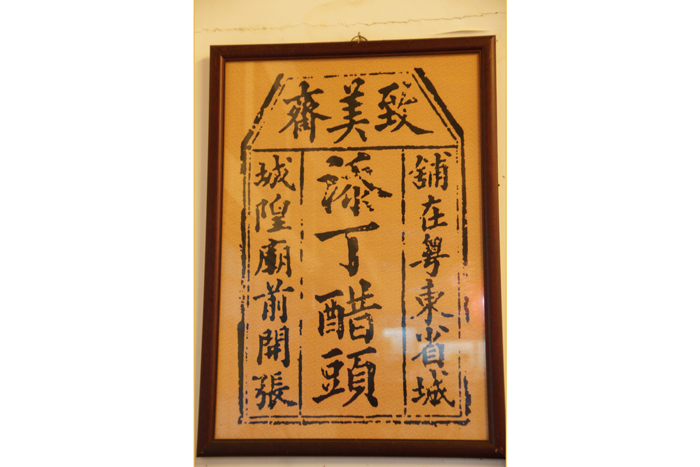 致美齋
舖在粵東省城
添丁醋頭
城隍廟前開張